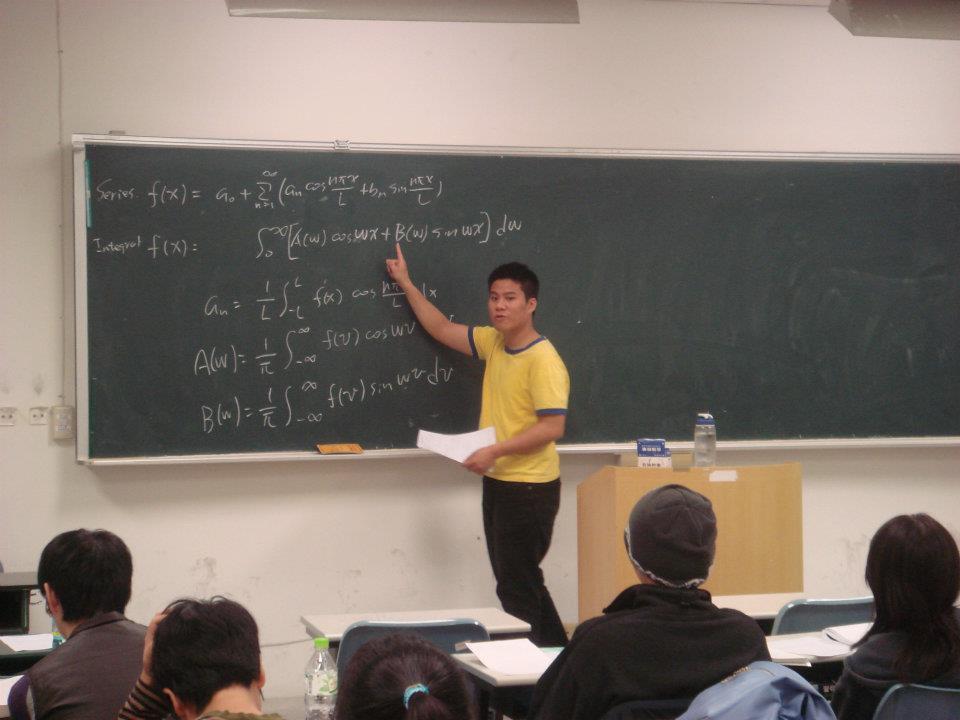 Series f(x) = a₀ + ∑ₙ₌₁^∞ (aₙ cos nπx/L + bₙ sin nπx/L)
Integral f(x) = ∫₀^∞ [A(w) cos wx + B(w) sin wx] dw
aₙ = 1/L ∫₋L^L f(x) cos nπx/L dx
A(w) = 1/π ∫₋∞^∞ f(v) cos wv
B(w) = 1/π ∫₋∞^∞ f(v) sin wv dv